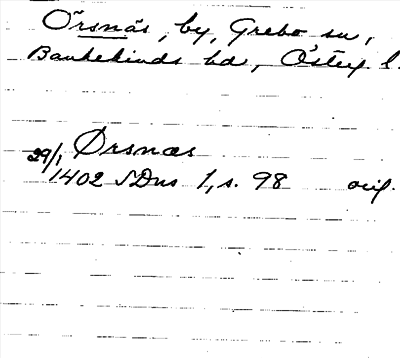 Örsnäs, by, Grebo sn,
Bankekinds hd, Östg l.
Ørsnæs
29/1 1402 SDns 1, s. 98 orig.